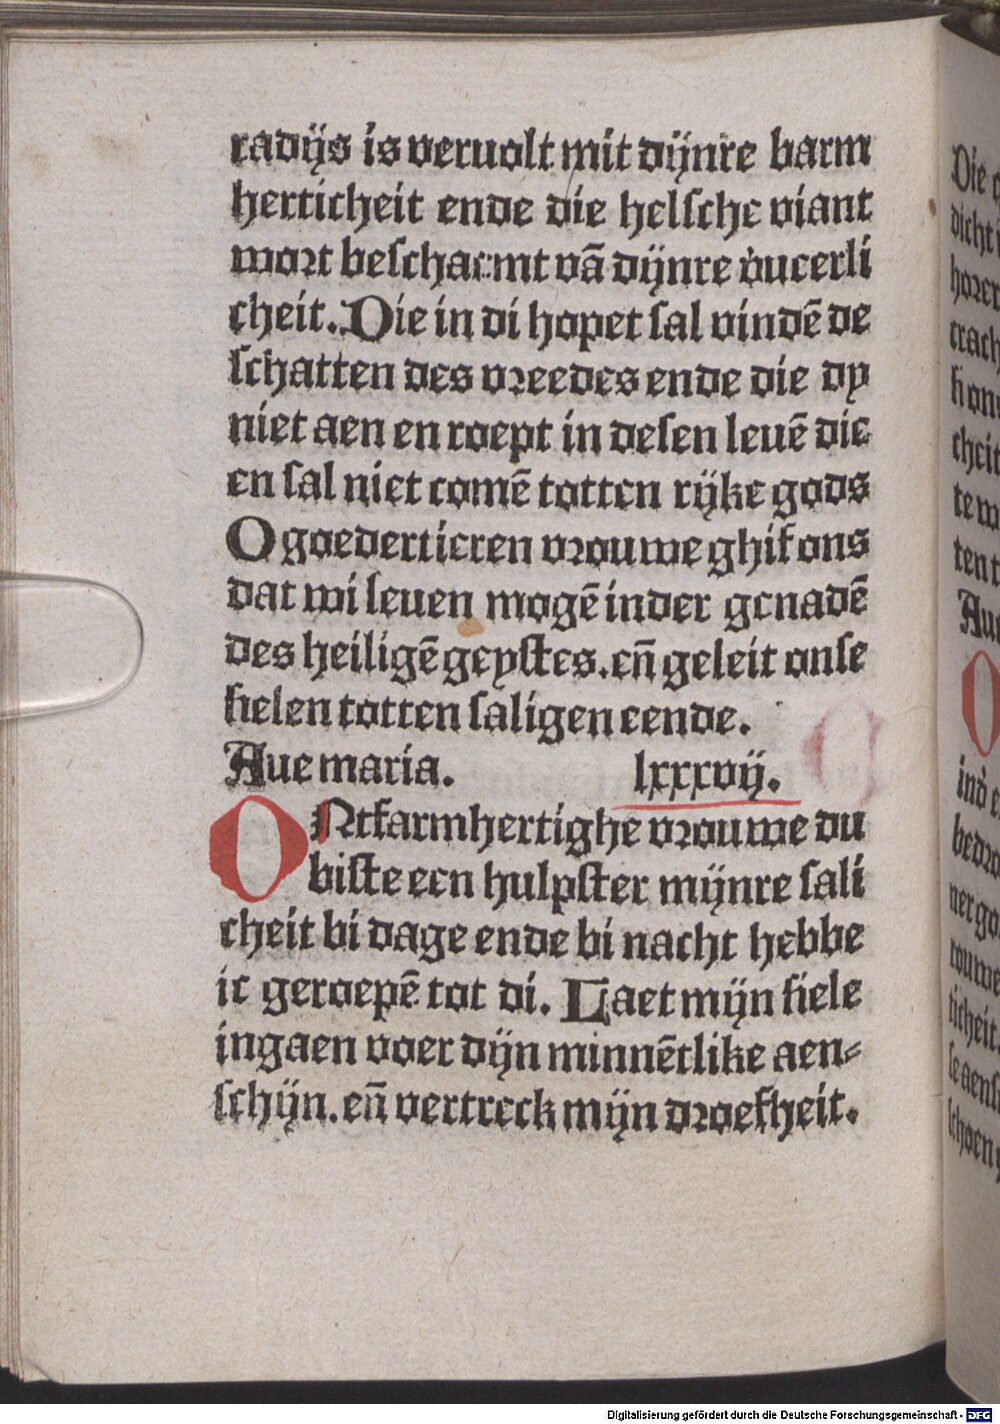 radijs is veruolt mit dijnre barm
herticheit ende die helsche viant
wort beschaemt vā dijnre
cheit. Die in di hopet sal vindē de
schatten des vreedes ende die dy
niet aen en roept in desen leuē die
en sal niet comē totten rijke gods
O goedertieren vrouwe ghif ons
dat wi leuen mogē inder genadē
des heiligē geystes. eñ geleit onse
sielen totten saligen eende.
Aue maria. lxxxvij.
ONtfarmhertighe vrouwe du
biste een hulpster mijnre sali
cheit bi dage ende bi nacht hebbe
ic geroepē tot di. Laet mijn siele
ingaen voer dijn minnētlike aen-
schijn. eñ vertreck mijn droefheit.
Die
dicht
horer
trach
si on
cheit
te
ten t
Aue
O
bedro
ner go
rouwe
ticheit.
se aens
schoen
Digitalisierung gefördert durch die Deutsche Forschungsgemeinschaft - DFG